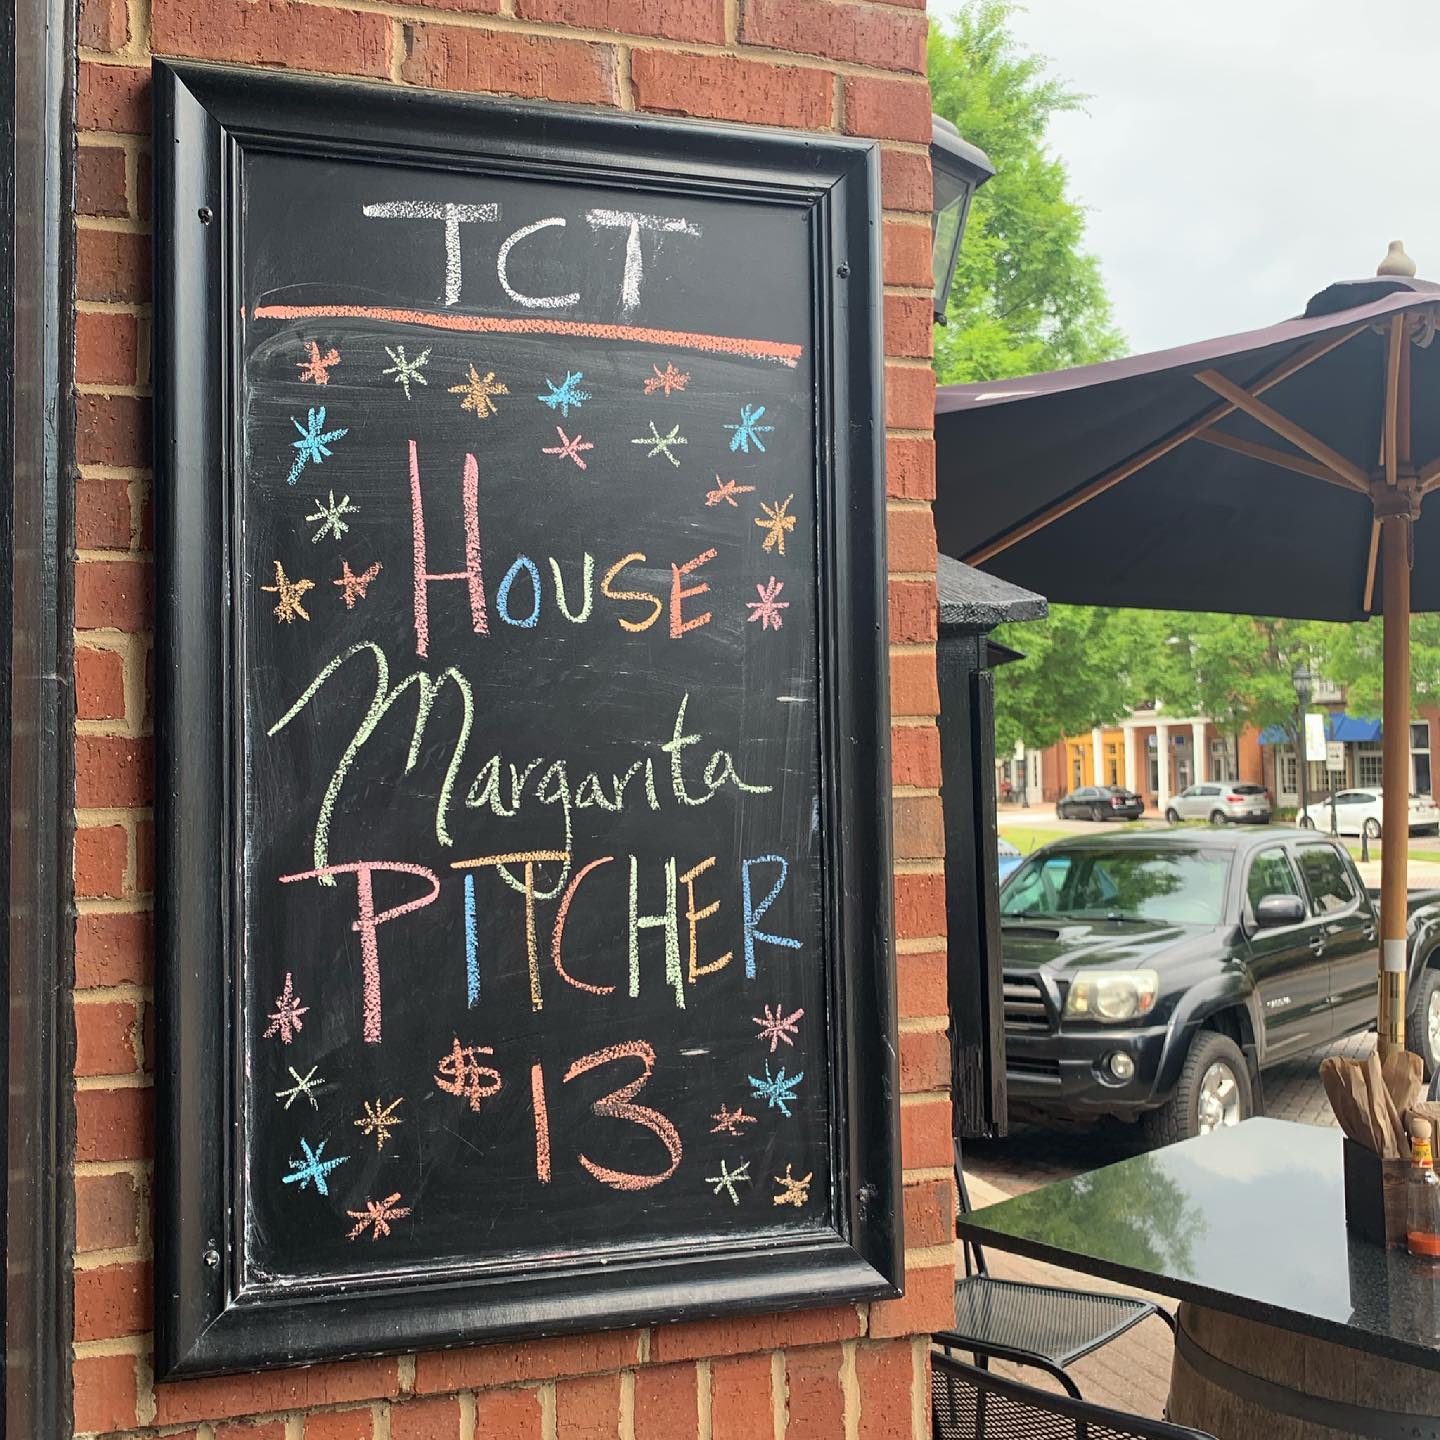 TCT
HOUSE
Margarita
PITCHER
$13